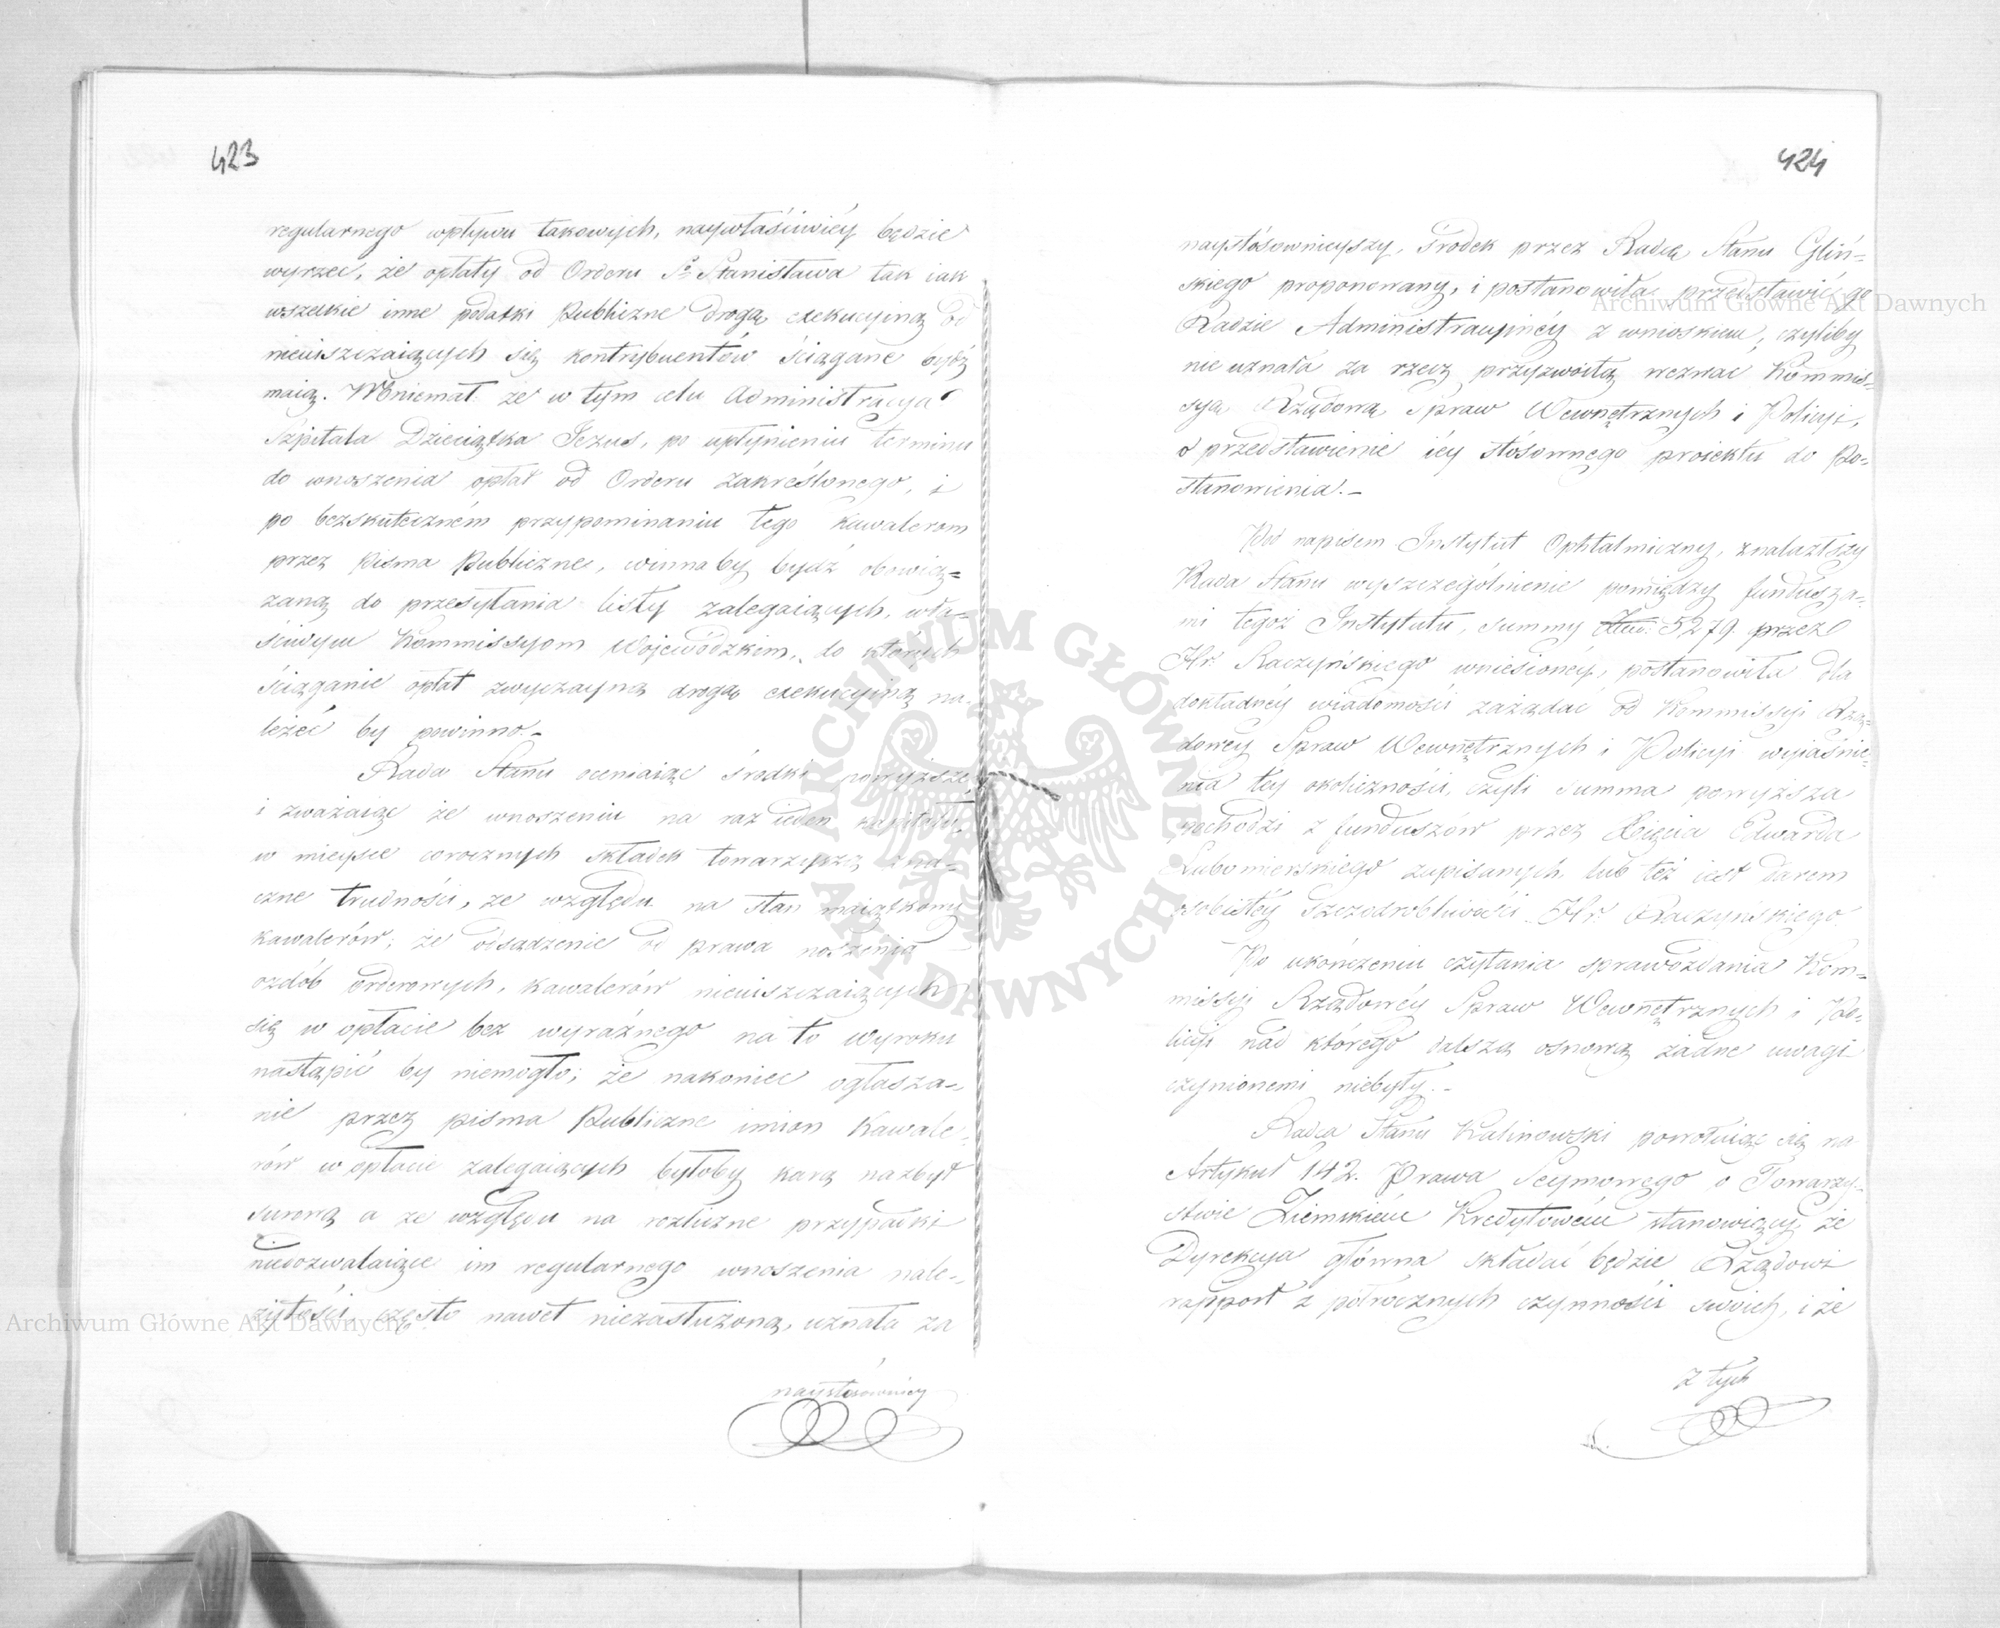 423
regularnego wpływu takowych, naywłaściwiéy będzie
wyrzec, że opłaty od Orderu Sgo Stanisława tak iak
wszelkie inne podatki Publiczne drogą exekucyiną od
nieuiszczaiących się kontrybuentów ściągane bydź
maią. Mniemał że w tym celu Administracya
Szpitala Dzieciątka Jezus, po upłynieniu terminu
do wnoszenia opłat od Orderu zakreślonego, i
po bezskuteczném przypominaniu tego Kawalerom
przez Pisma Publiczne, winna by bydź obowią=
zaną do przesyłania listy zalegaiących, wła=
ściwym Kommissyom Wojewódzkim, do których
ściąganie opłat zwyczayną drogą exekucyiną na=
leżeć by powinno.
Rada Stanu oceniaiąc środki powyższe,
i zważaiąc że wnoszeniu na raz ieden kapitału,
w mieysce corocznych składek towarzyszą zna=
czne trudności, ze względu na stan maiątkowy
kawalerów; że odsądzenie od prawa noszenia
ozdób orderowych, kawalerów nieuiszczaiących
się w opłacie bez wyraźnego na to wyroku
nastąpić by niemogło; że nakoniec ogłasza=
nie przez pisma Publiczne imion Kawale=
rów w opłacie zalegaiących byłoby karą nazbyt
surową a ze względu na rozliczne przypadki
niedozwalaiące im regularnego wnoszenia nale=
żytości, często nawet niezasłużoną, uznała za
naystosowniey
424
naystósownieyszy, środek przez Radcę Stanu Gliń=
skiego proponowany, i postanowiła przedstawić go
Radzie Administracyinéy z wnioskiem, czyliby
nie uznała za rzecz przyzwoitą wezwać Kommis=
syą Rządową Spraw Wewnętrznych i Policyi,
o przedstawienie iéy stósownego proiektu do Po=
stanowienia.
Pod napisem Instytut Ophtalmiczny, znalazłszy
Rada Stanu wyszczególnienie pomiędzy fundusza=
mi tegoż Instytutu, summy 5279 przez
Hr. Raczyńskiego wniesionéy, postanowiła dla
dokładnéy wiadomości zażądać od Kommissyi Rzą=
dowéy Spraw Wewnętrznych i Policyi wyiaśnie=
nia téy okoliczności, czyli summa powyższa
pochodzi z funduszów przez Xięcia Edwarda
Lubomirskiego zapisanych, lub też iest darem
osobistéy szczodrobliwości Hr. Raczyńskiego.
Po ukończeniu czytania sprawozdania Kom=
missyi Rządowéy Spraw Wewnętrznych i Po=
licyi nad którego dalszą osnową żadne uwagi
czynionemi niebyły.
Radca Stanu Kalinowski powołuiąc się na
Artykuł 142. Prawa Seymowego o Towarzy=
stwie Ziemskiém Kredytowém stanowiący, że
Dyrekcya główna składać będzie Rządowi
rapport z półrocznych czynności swoich, i że
z tych
Archiwum Główne Akt Dawnych
Archiwum Główne Akt Dawnych
ARCHIWUM GŁÓWNE AKT DAWNYCH